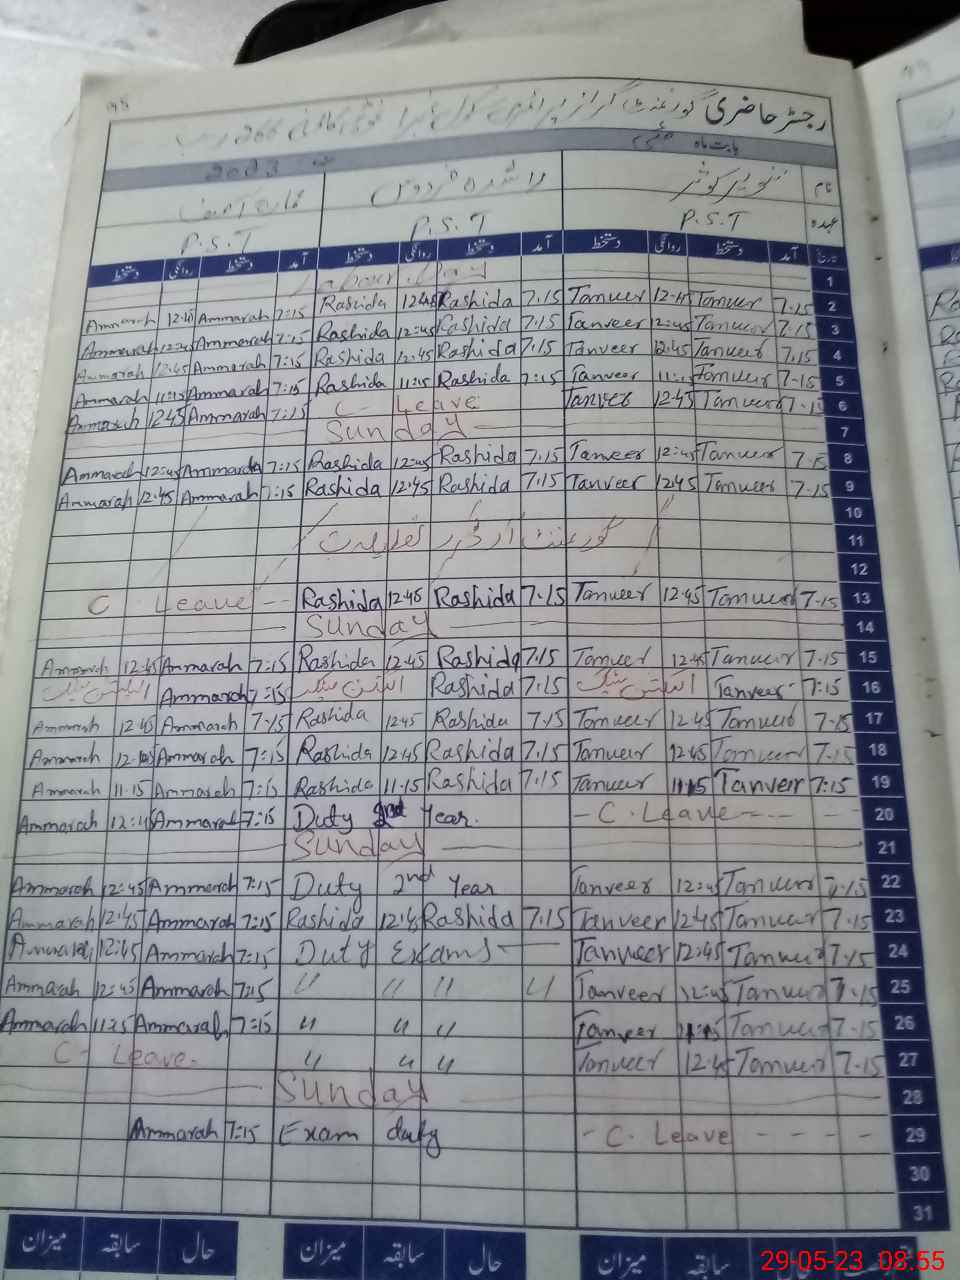 98
رجسٹر حاضری گورنمنٹ گرلز پرائمری سکول
بابت ماہ مئی 2023
نام تنویر کوثر راشدہ فردوس
عہدہ P.S.T P.S.T P.S.T
تاریخ آمد دستخط روانگی دستخط آمد دستخط روانگی دستخط آمد دستخط روانگی دستخط
Labour Day 1
Ammarah 12:45 Ammarah 7:15 Rashida 12:45 Rashida 7.15 Tanveer 12.45 Tanveer 7.15 2
Ammarah 12:45 Ammarah 7:15 Rashida 12:45 Rashida 7.15 Tanveer 12:45 Tanveer 7.15 3
Ammarah 12.45 Ammarah 7:15 Rashida 12.45 Rashida 7.15 Tanveer 12.45 Tanveer 7.15 4
Ammarah 11:15 Ammarah 7:15 Rashida 11:15 Rashida 7:15 Tanveer 11:15 Tanveer 7-15 5
Ammarah 12.45 Ammarah 7:15 C- Leave Tanveer 12.45 Tanveer 7-15 6
Sunday 7
Ammarah 12:45 Ammarah 7:15 Rashida 12:45 Rashida 7.15 Tanveer 12:45 Tanveer 7-15 8
Ammarah 12.45 Ammarah 7:15 Rashida 12.45 Rashida 7.15 Tanveer 12.45 Tanveer 7-15 9
10
گورنمنٹ آرڈر تعطیلات 11
12
C. Leave -- Rashida 12.45 Rashida 7.15 Tanveer 12.45 Tanveer 7-15 13
Sunday 14
Ammarah 12.45 Ammarah 7:15 Rashida 12.45 Rashida 7.15 Tanveer 12.45 Tanveer 7-15 15
Ammarah 7:15 Rashida 7.15 Tanveer 7:15 16
Ammarah 12.45 Ammarah 7:15 Rashida 12.45 Rashida 7.15 Tanveer 12.45 Tanveer 7-15 17
Ammarah 12.45 Ammarah 7:15 Rashida 12.45 Rashida 7.15 Tanveer 12.45 Tanveer 7-15 18
Ammarah 11.15 Ammarah 7:15 Rashida 11.15 Rashida 7.15 Tanveer 11.15 Tanveer 7:15 19
Ammarah 12:45 Ammarah 7:15 Duty 2nd Year. - C. Leave --- - 20
Sunday 21
Ammarah 12:45 Ammarah 7:15 Duty 2nd Year Tanveer 12:45 Tanveer 7.15 22
Ammarah 12.45 Ammarah 7:15 Rashida 12.45 Rashida 7.15 Tanveer 12.45 Tanveer 7-15 23
Ammarah 12:45 Ammarah 7:15 Duty Exams Tanveer 12.45 Tanveer 7.15 24
Ammarah 12:45 Ammarah 7:15 " " " " Tanveer 12:45 Tanveer 7-15 25
Ammarah 11:15 Ammarah 7:15 " " " Tanveer 11:15 Tanveer 7-15 26
C- Leave. " " " Tanveer 12.45 Tanveer 7-15 27
Sunday 28
Ammarah 7:15 Exam duty - C. Leave - - - - 29
30
31
حال سابقہ میزان حال سابقہ میزان سابقہ میزان
29-05-23 08:55